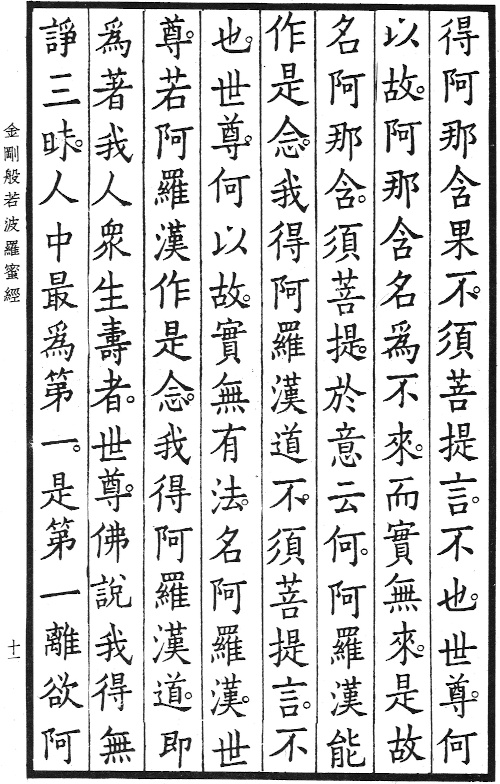 得阿那含果不。須菩提言。不也。世尊。何
以故。阿那含名為不來。而實無來。是故
名阿那含。須菩提。於意云何。阿羅漢能
作是念。我得阿羅漢道不。須菩提言。不
也。世尊。何以故。實無有法。名阿羅漢。世
尊。若阿羅漢作是念。我得阿羅漢道。即
為著我人眾生壽者。世尊。佛說我得無
諍三昧。人中最為第一。是第一離欲阿
金剛般若波羅蜜經
十一